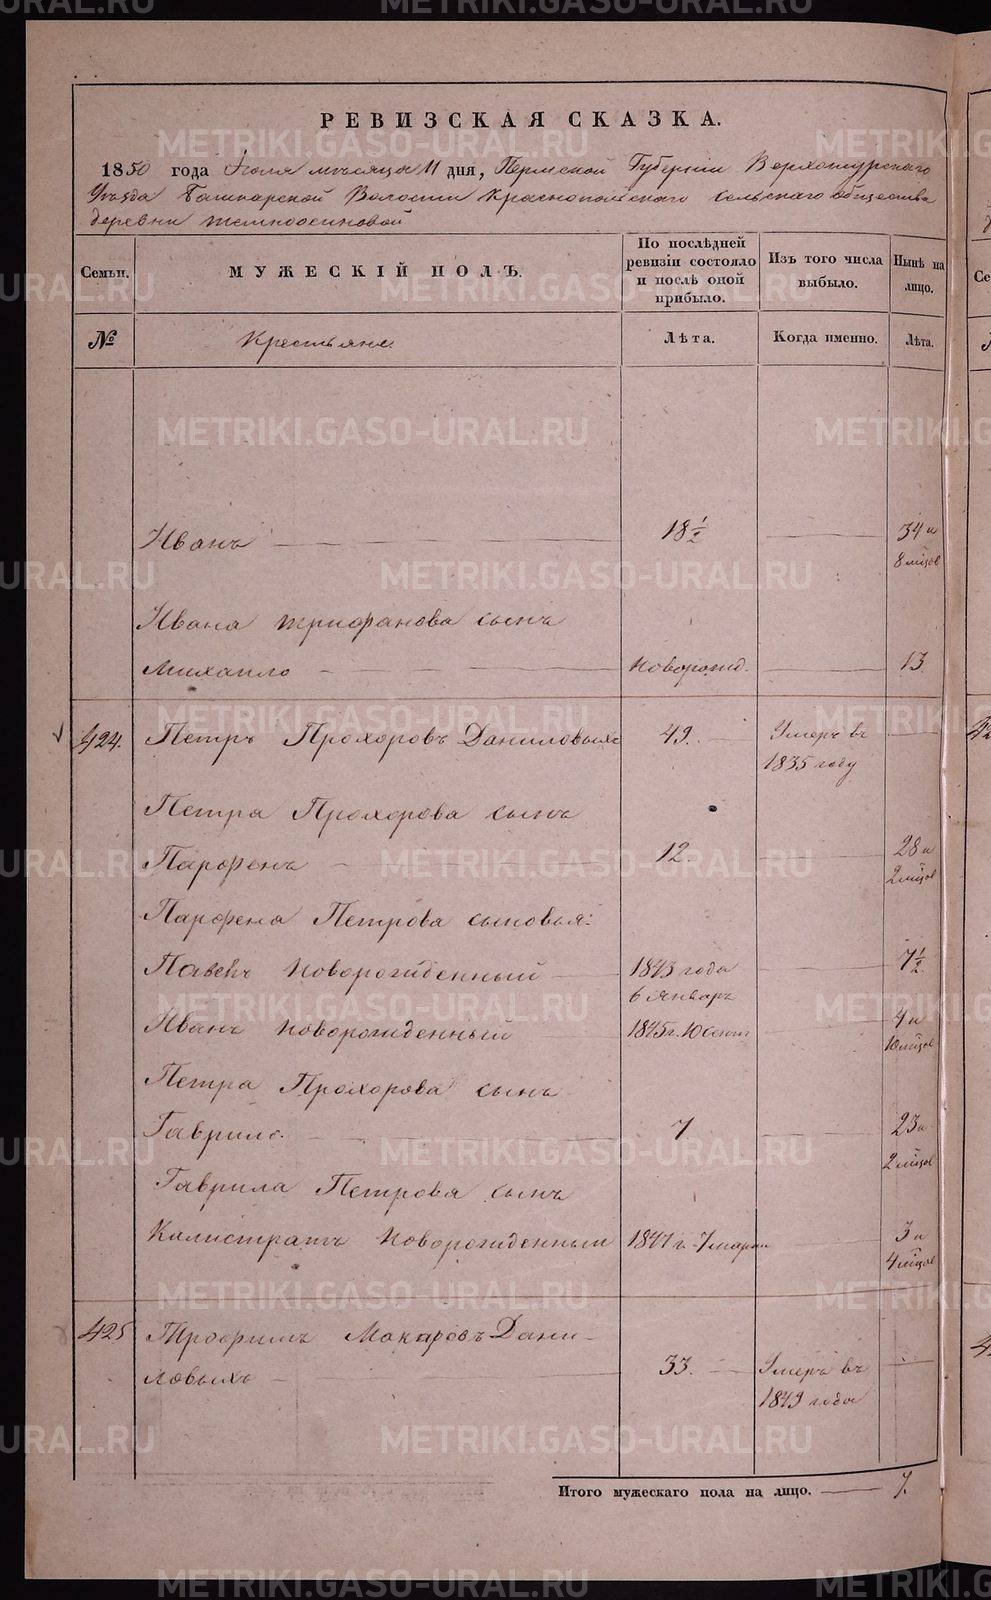 РЕВИЗСКАЯ СКАЗКА.
1850 года Июля мѣсяца 11 дня, Пермской Губерніи Верхотурскаго
Уѣзда Башкарской Волости Краснопольскаго сельскаго общества
деревни Темноосиновой
Семьи.
МУЖЕСКІЙ ПОЛЪ.
По послѣдней ревизіи состояло и послѣ оной прибыло.
Изъ того числа выбыло.
Нынѣ на лицо.
№
Крестьяне
Лѣта.
Когда именно.
Лѣта.
Иванъ 18½ 34 и
8 мѣцов
Ивана Трифанова сынъ
Михаило Новорожд. 13
424. Петръ Прохоровъ Даниловыхъ 49. Умеръ въ
1835 году
Петра Прохорова сынъ
Парфенъ 12. 28 и
2 мѣцов
Парфена Петрова сыновья:
Павелъ Новорожденный 1843 года 7½.
6 Январъ
Иванъ Новорожденный 1845 г. 10 сент 4 и
10 мѣцов
Петра Прохорова сынъ
Гаврило. 7 23 и
2 мѣцов
Гаврила Петрова сынъ
Калистратъ Новорожденный 1847 г. 7 марта 3 и
4 мѣцов
425 Трофимъ Макаровъ Дани-
ловыхъ 33. Умеръ въ
1849 года
Итого мужескаго пола на лицо. 7.
METRIKI.GASO-URAL.RU